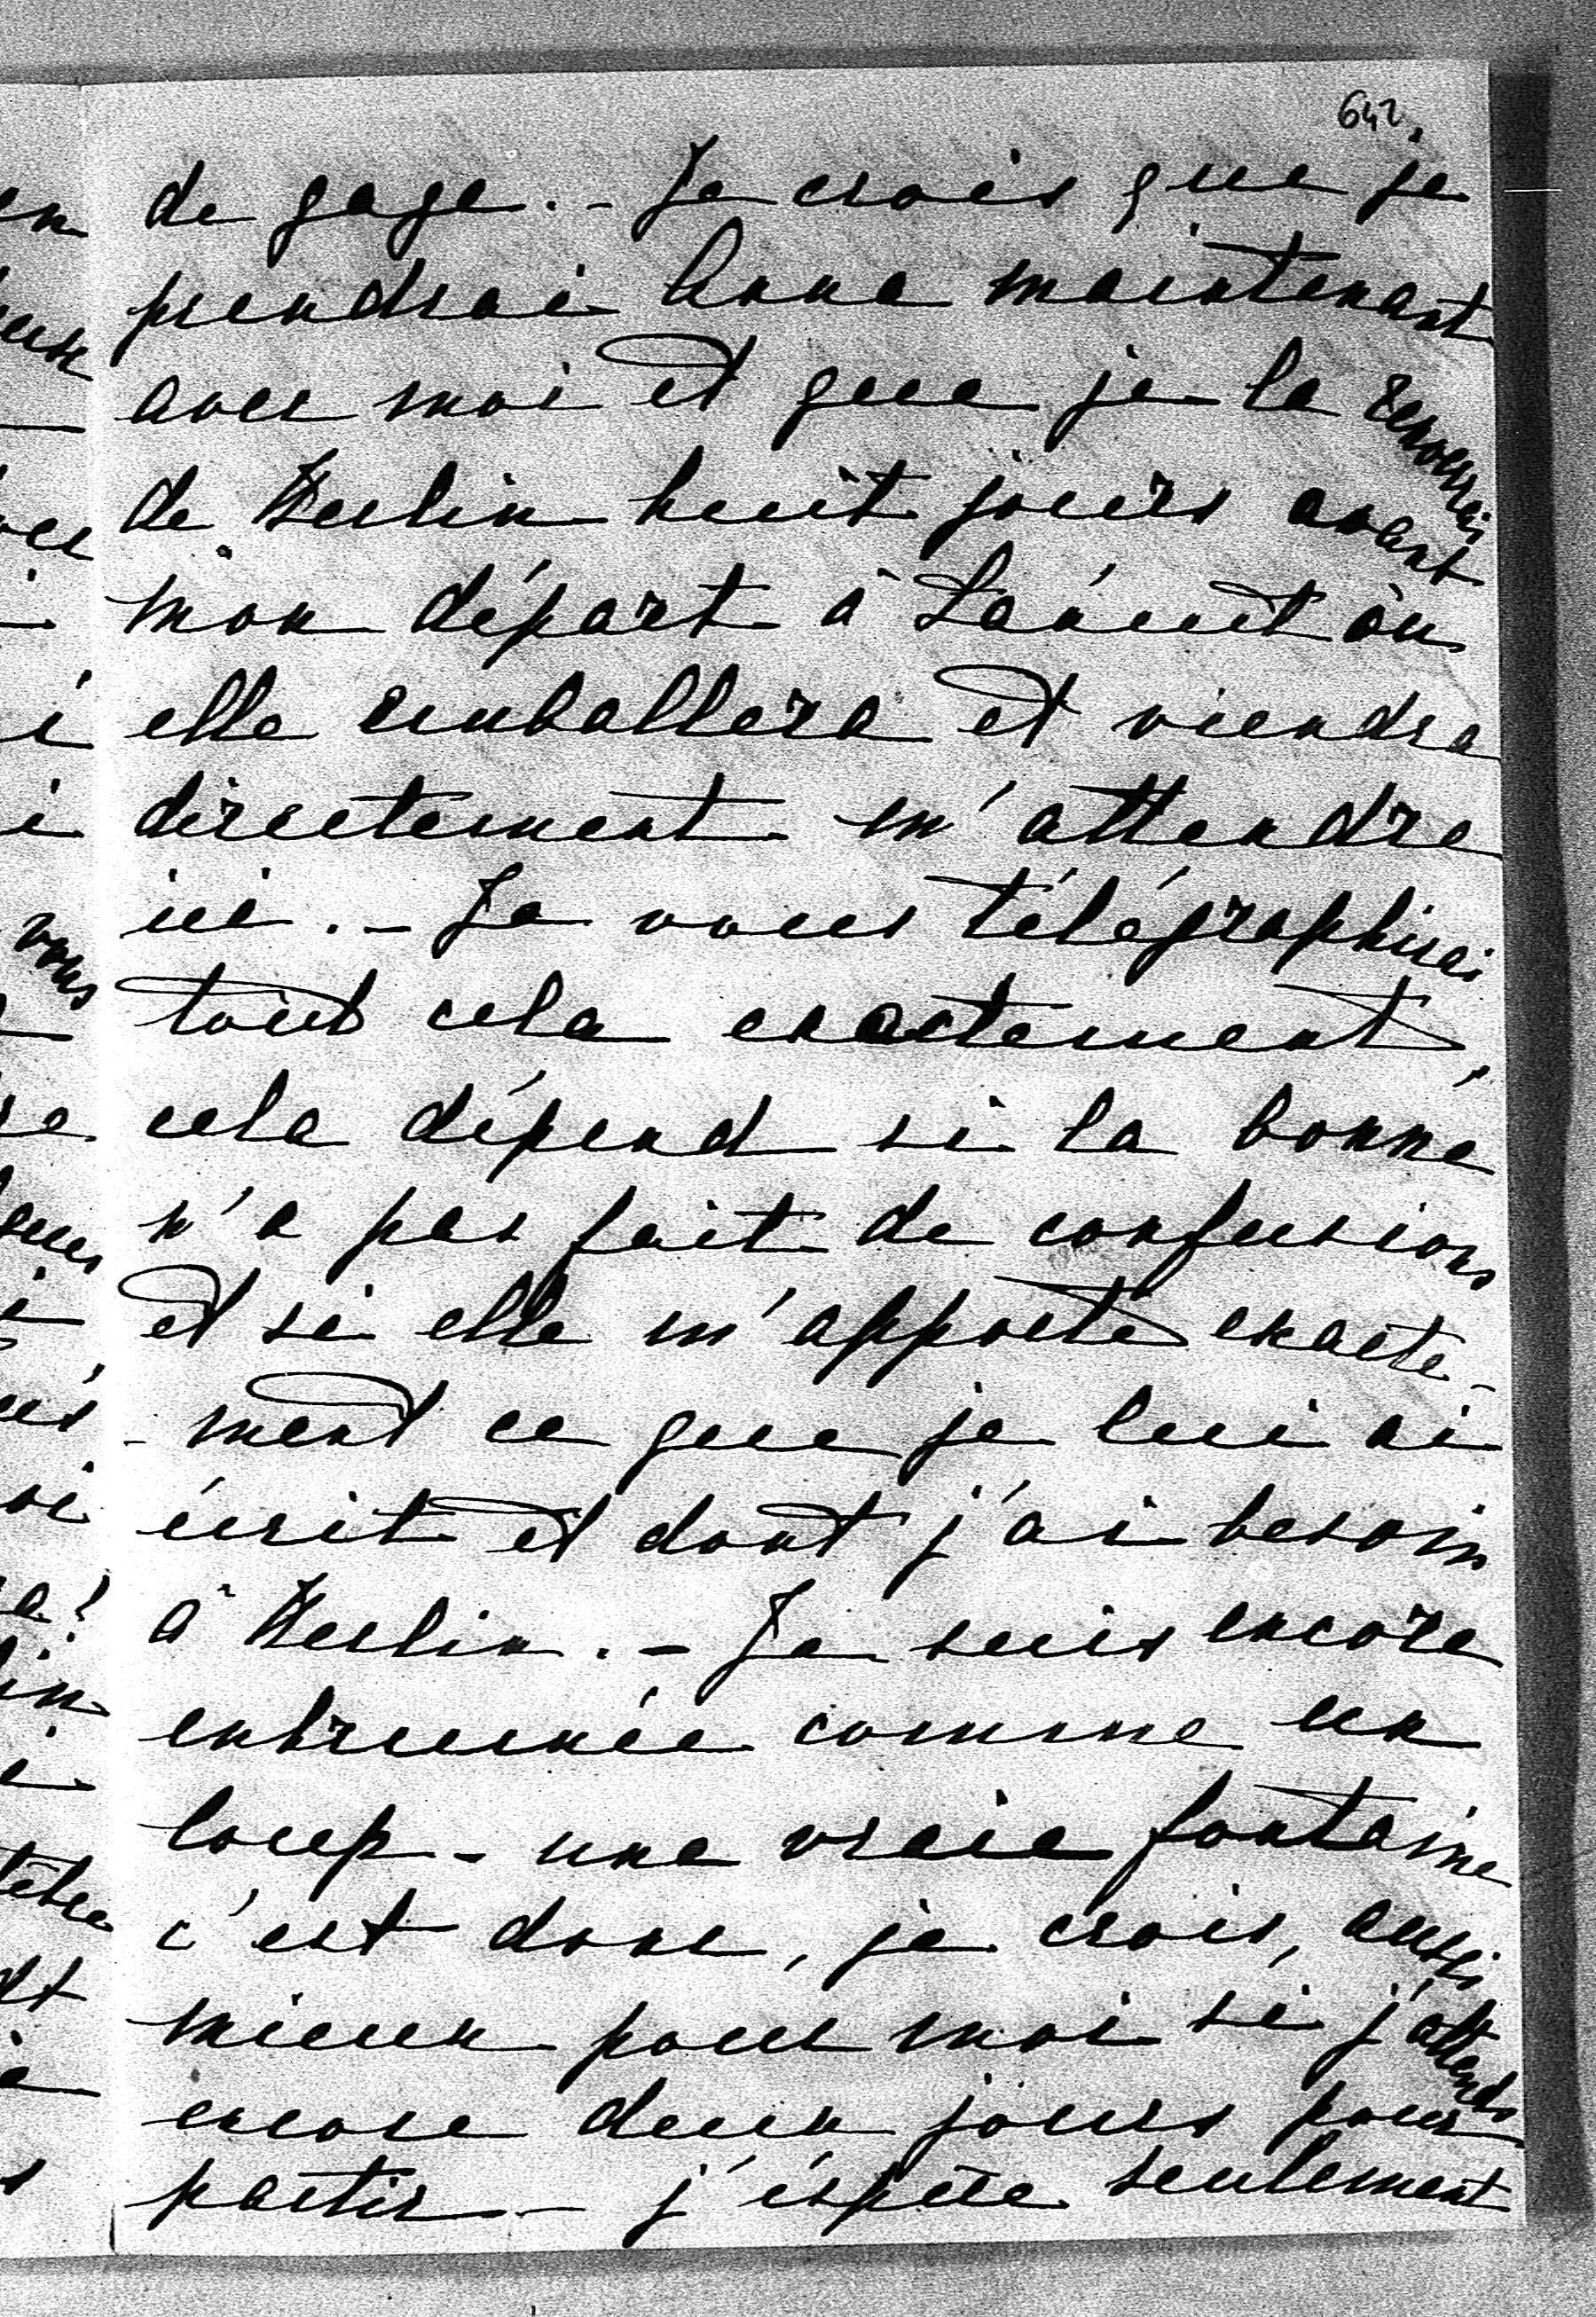 642.
de gage. - Je crois que je
prendrai Anna maintenant
avec moi et que je la renverrai
de Berlin huit jours avant
mon départ à Lancut où
elle emballera et viendra
directement m'attendre
ici. - Je vous télégraphirai
tout cela exactement,
cela dépend si la bonne
n'a pas fait de confusions
et si elle m'apporte exacte-
-ment ce que je lui ai
écrit et dont j'ai besoin
à Berlin. - Je suis encore
enhrumée comme un
loup - une vraie fontaine
c'est donc, je crois, aussi
mieux pour moi si j'attends
encore deux jours pour
partir - j'éspère seulement